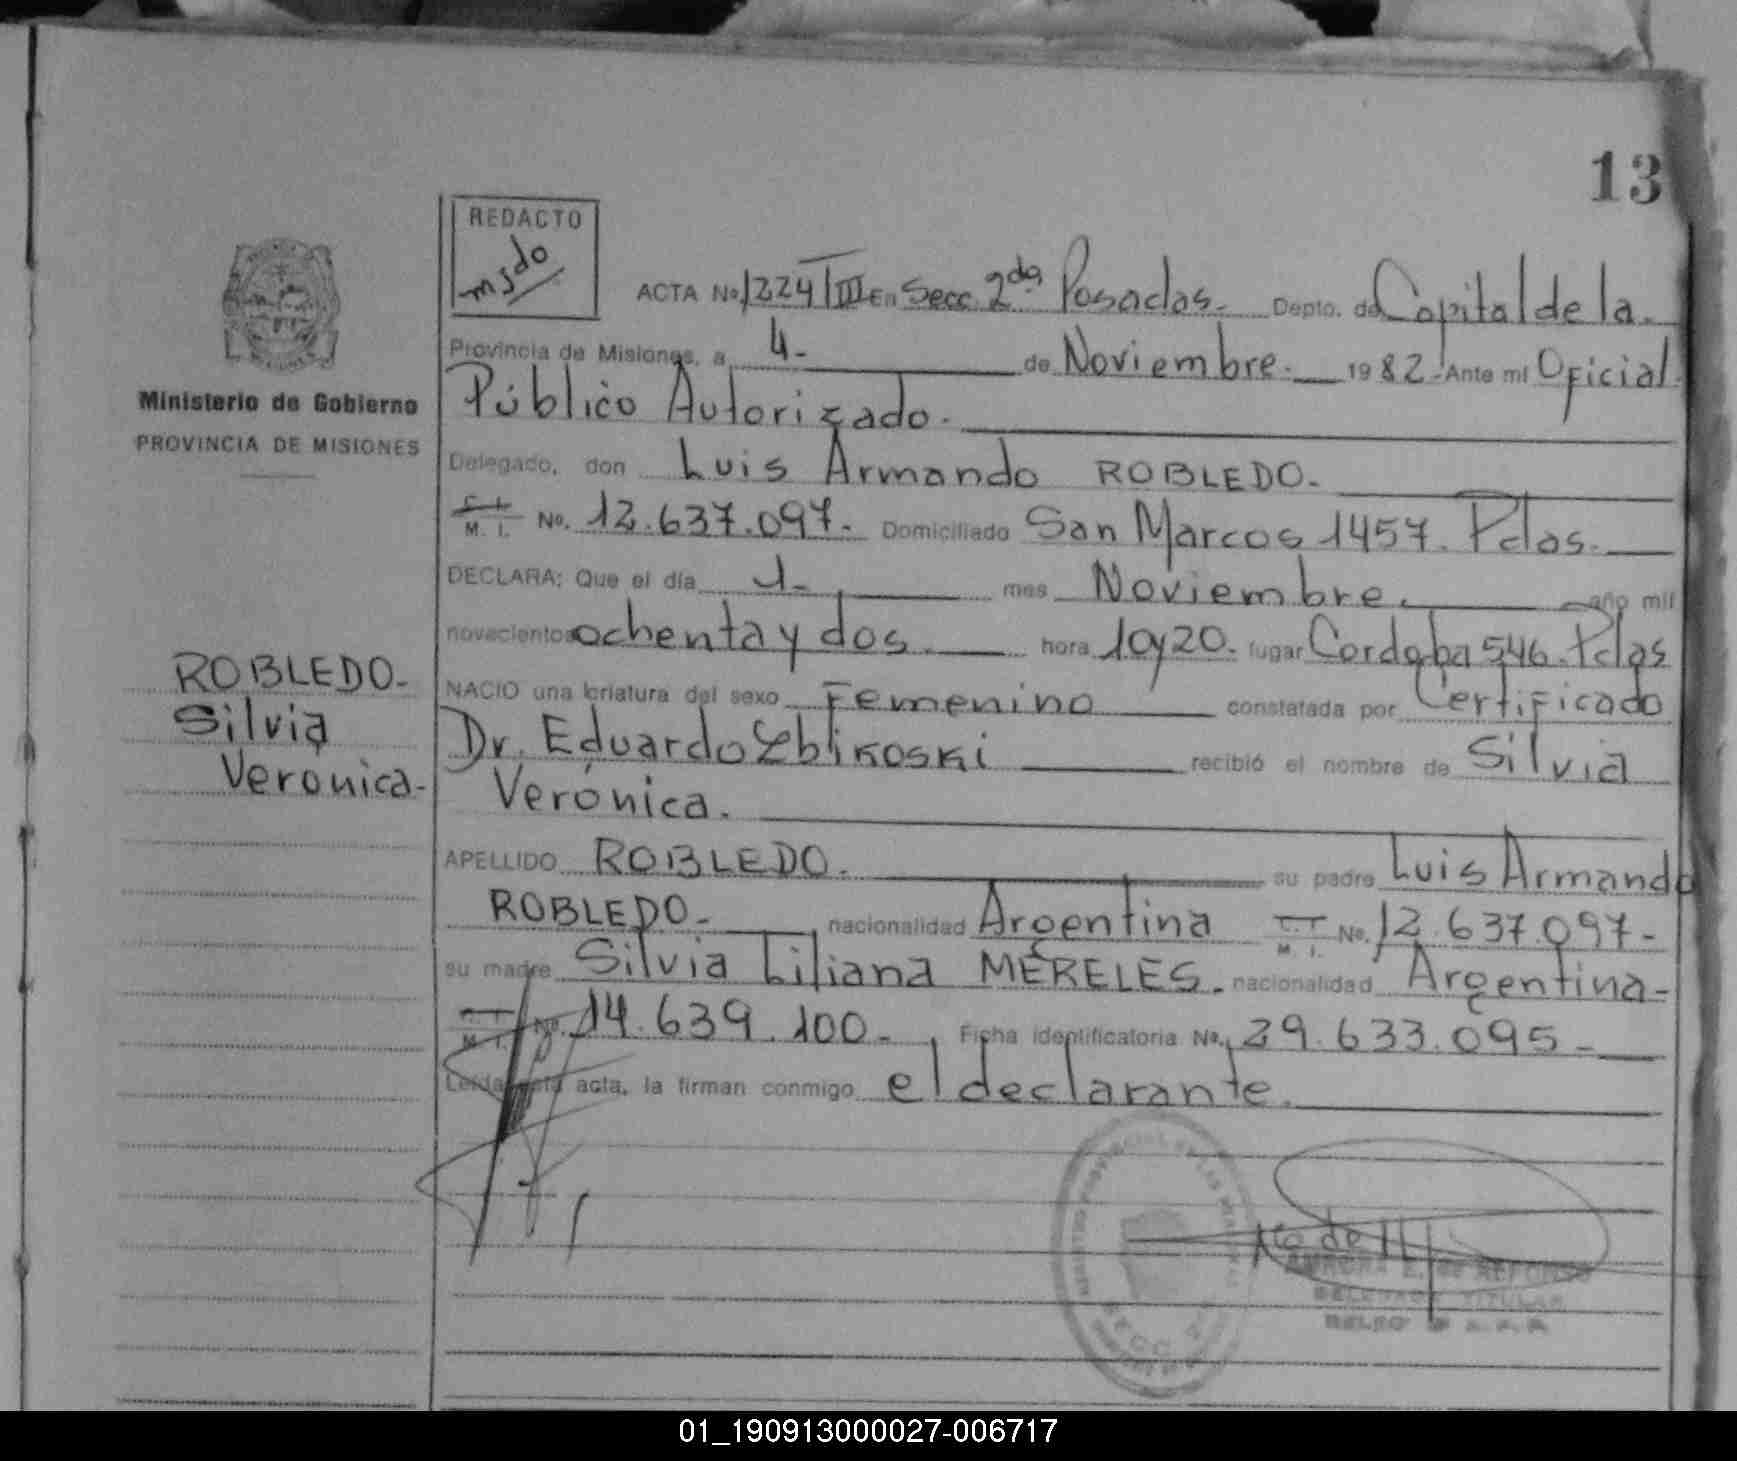 13
REDACTO
ACTA No 1224 III En Secc. 2da Posadas. Depto. de Capital de la
Provincia de Misiones, a 4- de Noviembre. 1982. Ante mí Oficial
Público Autorizado.
Delegado, don Luis Armando ROBLEDO.
M. I. No. 12.637.097. Domiciliado San Marcos 1457. Pdas.
DECLARA: Que el día 1- mes Noviembre. año mil
novecientos ochenta y dos. hora 10y20. lugar Cordoba 546. Pdas
NACIO una criatura del sexo Femenino constatada por Certificado
Dr. Eduardo recibió el nombre de Silvia
Verónica.
APELLIDO ROBLEDO. su padre Luis Armando
ROBLEDO- nacionalidad Argentina M. I. No. 12.637.097-
su madre Silvia Liliana MERELES. nacionalidad Argentina-
M. I. No. 14.639.100- Ficha identificatoria No. 29.633.095-
Leída esta acta, la firman conmigo el declarante.
Ministerio de Gobierno
PROVINCIA DE MISIONES
ROBLEDO-
Silvia
Veronica-
DELEGADA TITULAR
01_190913000027-006717